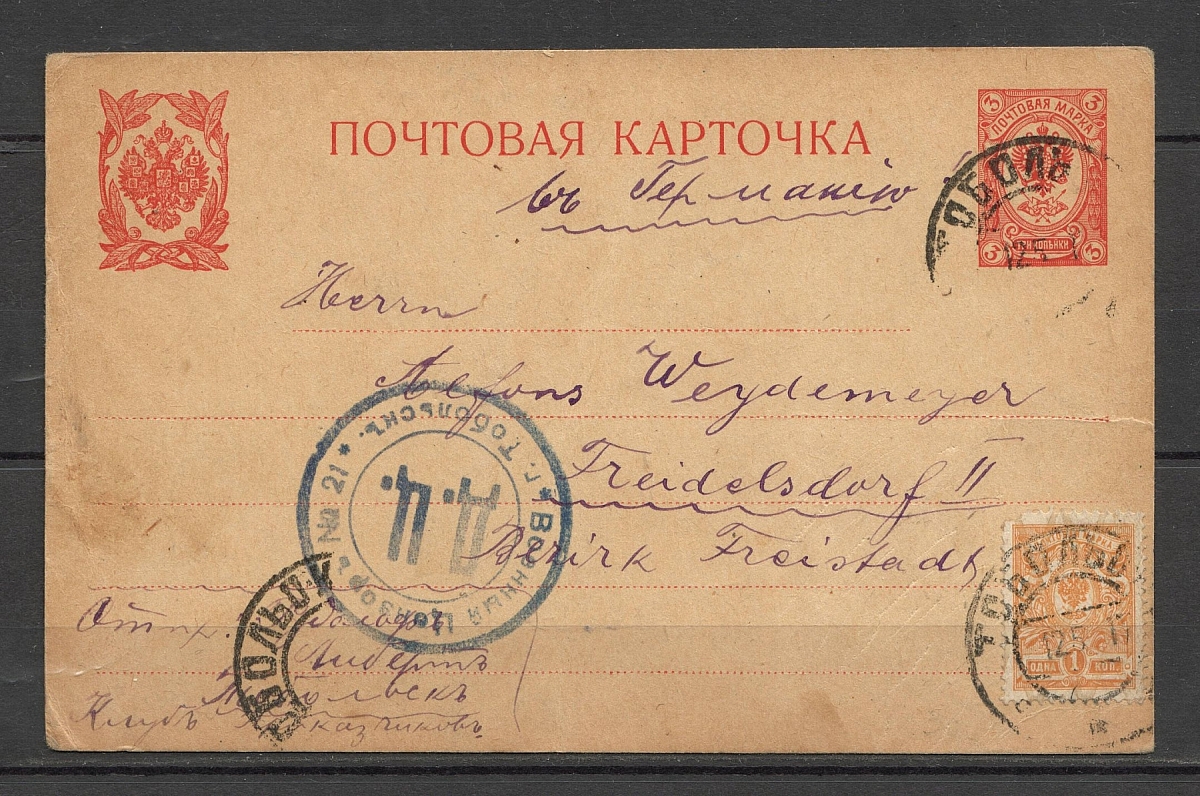 ПОЧТОВАЯ КАРТОЧКА
3 ПОЧТОВАЯ МАРКА 3
3 ТРИ КОПѢЙКИ 3
ТОБОЛЬ
12 5
въ Германію
Herrn
Alfons Weydemeyer
Freidelsdorf II
Bezirk Freistadt
* Военный Цензоръ № 21 * г. Тобольскъ.
Д. Ц.
Отпр.
Либертъ
Тобольскъ
Клубъ
ТОБОЛЬСК
ОДНА 1 КОП.
ТОБОЛЬС
12 5 17